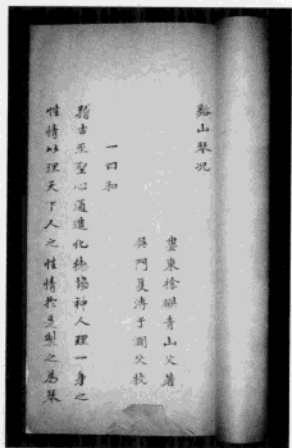 谿山琴况
婁東徐䤃青山父著
吳門夏溥于澗父校
一曰和
稽古至聖心通造化德協神人理一身之
性情以理天下人之性情於是製之為琴